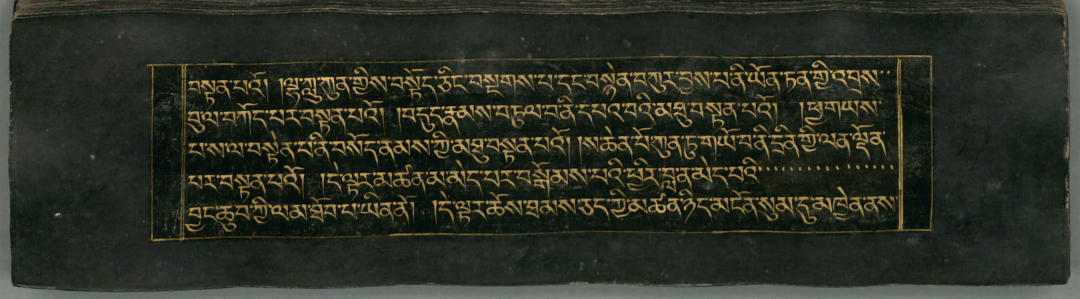 བསྟན་པའོ། །ལྷ་ཀླུ་ཀུན་གྱིས་བསྟོད་ཅིང་བསྔགས་པ་དང་བསྙེན་བཀུར་བྱས་པ་ནི་ཡོན་ཏན་གྱི་འབྲས་
བུ་ལ་བཀོད་པར་བསྟན་པའོ། །བདུད་རྣམས་བཏུལ་བ་ནི་དཔའ་བའི་མཐུ་བསྟན་པའོ། །ཕྱག་ཡས་
པ་ས་ལ་བསྟེན་པ་ནི་བསོད་ནམས་ཀྱི་མཐུ་བསྟན་པའོ། །ས་ཆེན་པོ་ཀུན་ཏུ་གཡོ་བ་ནི་དྲིན་གྱི་ལན་ལྡོན་
པར་བསྟན་པའོ། །ད་ལྟར་མཚན་མ་མེད་པར་བསྒོམས་པའི་ཕྱིར་བླན་མེད་པའི་
བྱང་ཆུབ་ཀྱི་ལམ་ཐོབ་པ་ཡིན་ནོ། །ད་ལྟར་ཆོས་ཐམས་ཅད་ཀྱི་མཚན་ཉིད་མངོན་སུམ་དུ་མཁྱེན་ནས་